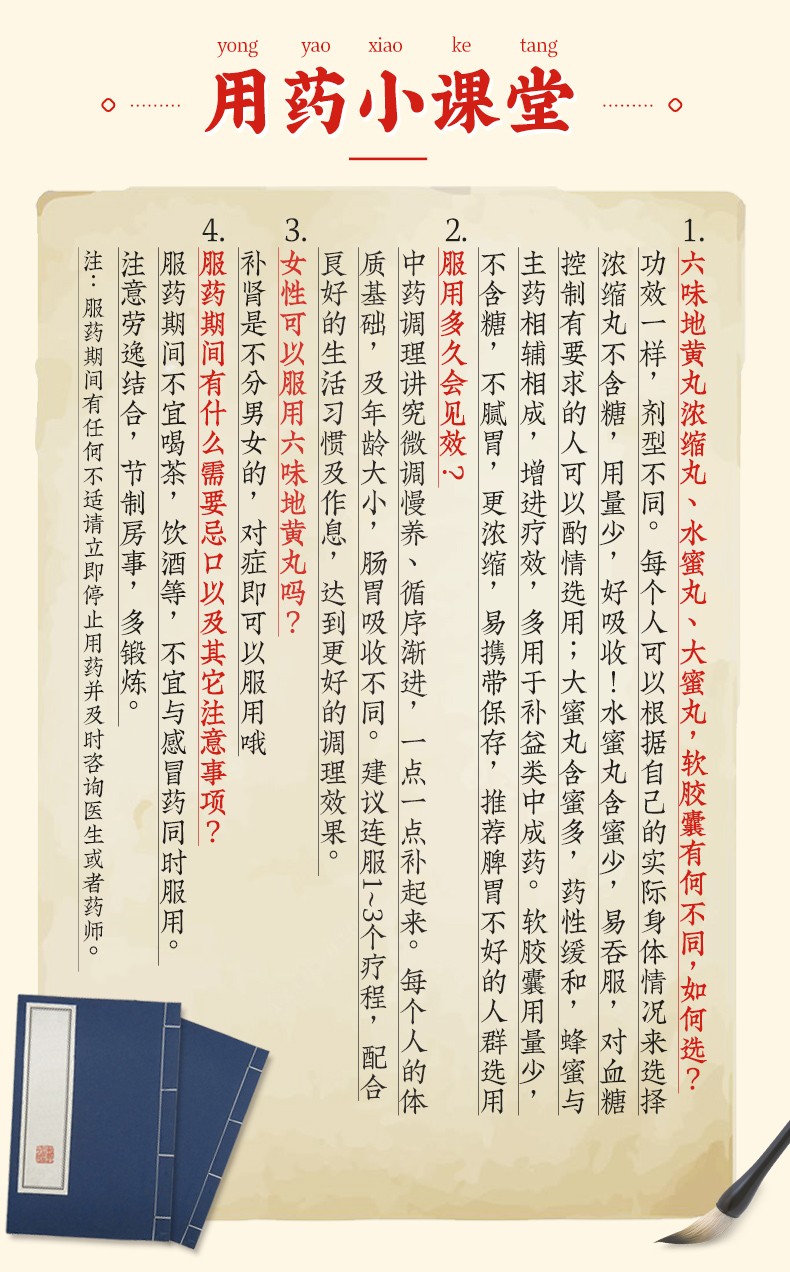 yong yao xiao ke tang
用药小课堂
1.
六味地黄丸浓缩丸、水蜜丸、大蜜丸，软胶囊有何不同，如何选？
功效一样，剂型不同。每个人可以根据自己的实际身体情况来选择
浓缩丸不含糖，用量少，好吸收！水蜜丸含蜜少，易吞服，对血糖
控制有要求的人可以酌情选用；大蜜丸含蜜多，药性缓和，蜂蜜与
主药相辅相成，增进疗效，多用于补益类中成药。软胶囊用量少，
不含糖，不腻胃，更浓缩，易携带保存，推荐脾胃不好的人群选用
2.
服用多久会见效？
中药调理讲究微调慢养、循序渐进，一点一点补起来。每个人的体
质基础，及年龄大小，肠胃吸收不同。建议连服1~3个疗程，配合
良好的生活习惯及作息，达到更好的调理效果。
3.
女性可以服用六味地黄丸吗？
补肾是不分男女的，对症即可以服用哦
4.
服药期间有什么需要忌口以及其它注意事项？
服药期间不宜喝茶，饮酒等，不宜与感冒药同时服用。
注意劳逸结合，节制房事，多锻炼。
注：服药期间有任何不适请立即停止用药并及时咨询医生或者药师。